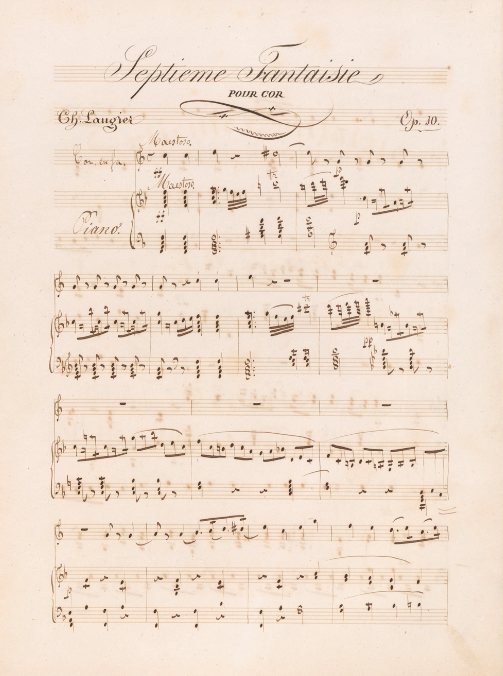 Septieme Fantaisie
POUR COR
Ch: Laugier Op. 10.
Cor. en fa. Maestoso
Maestoso
Piano.
ff
p
pp
p